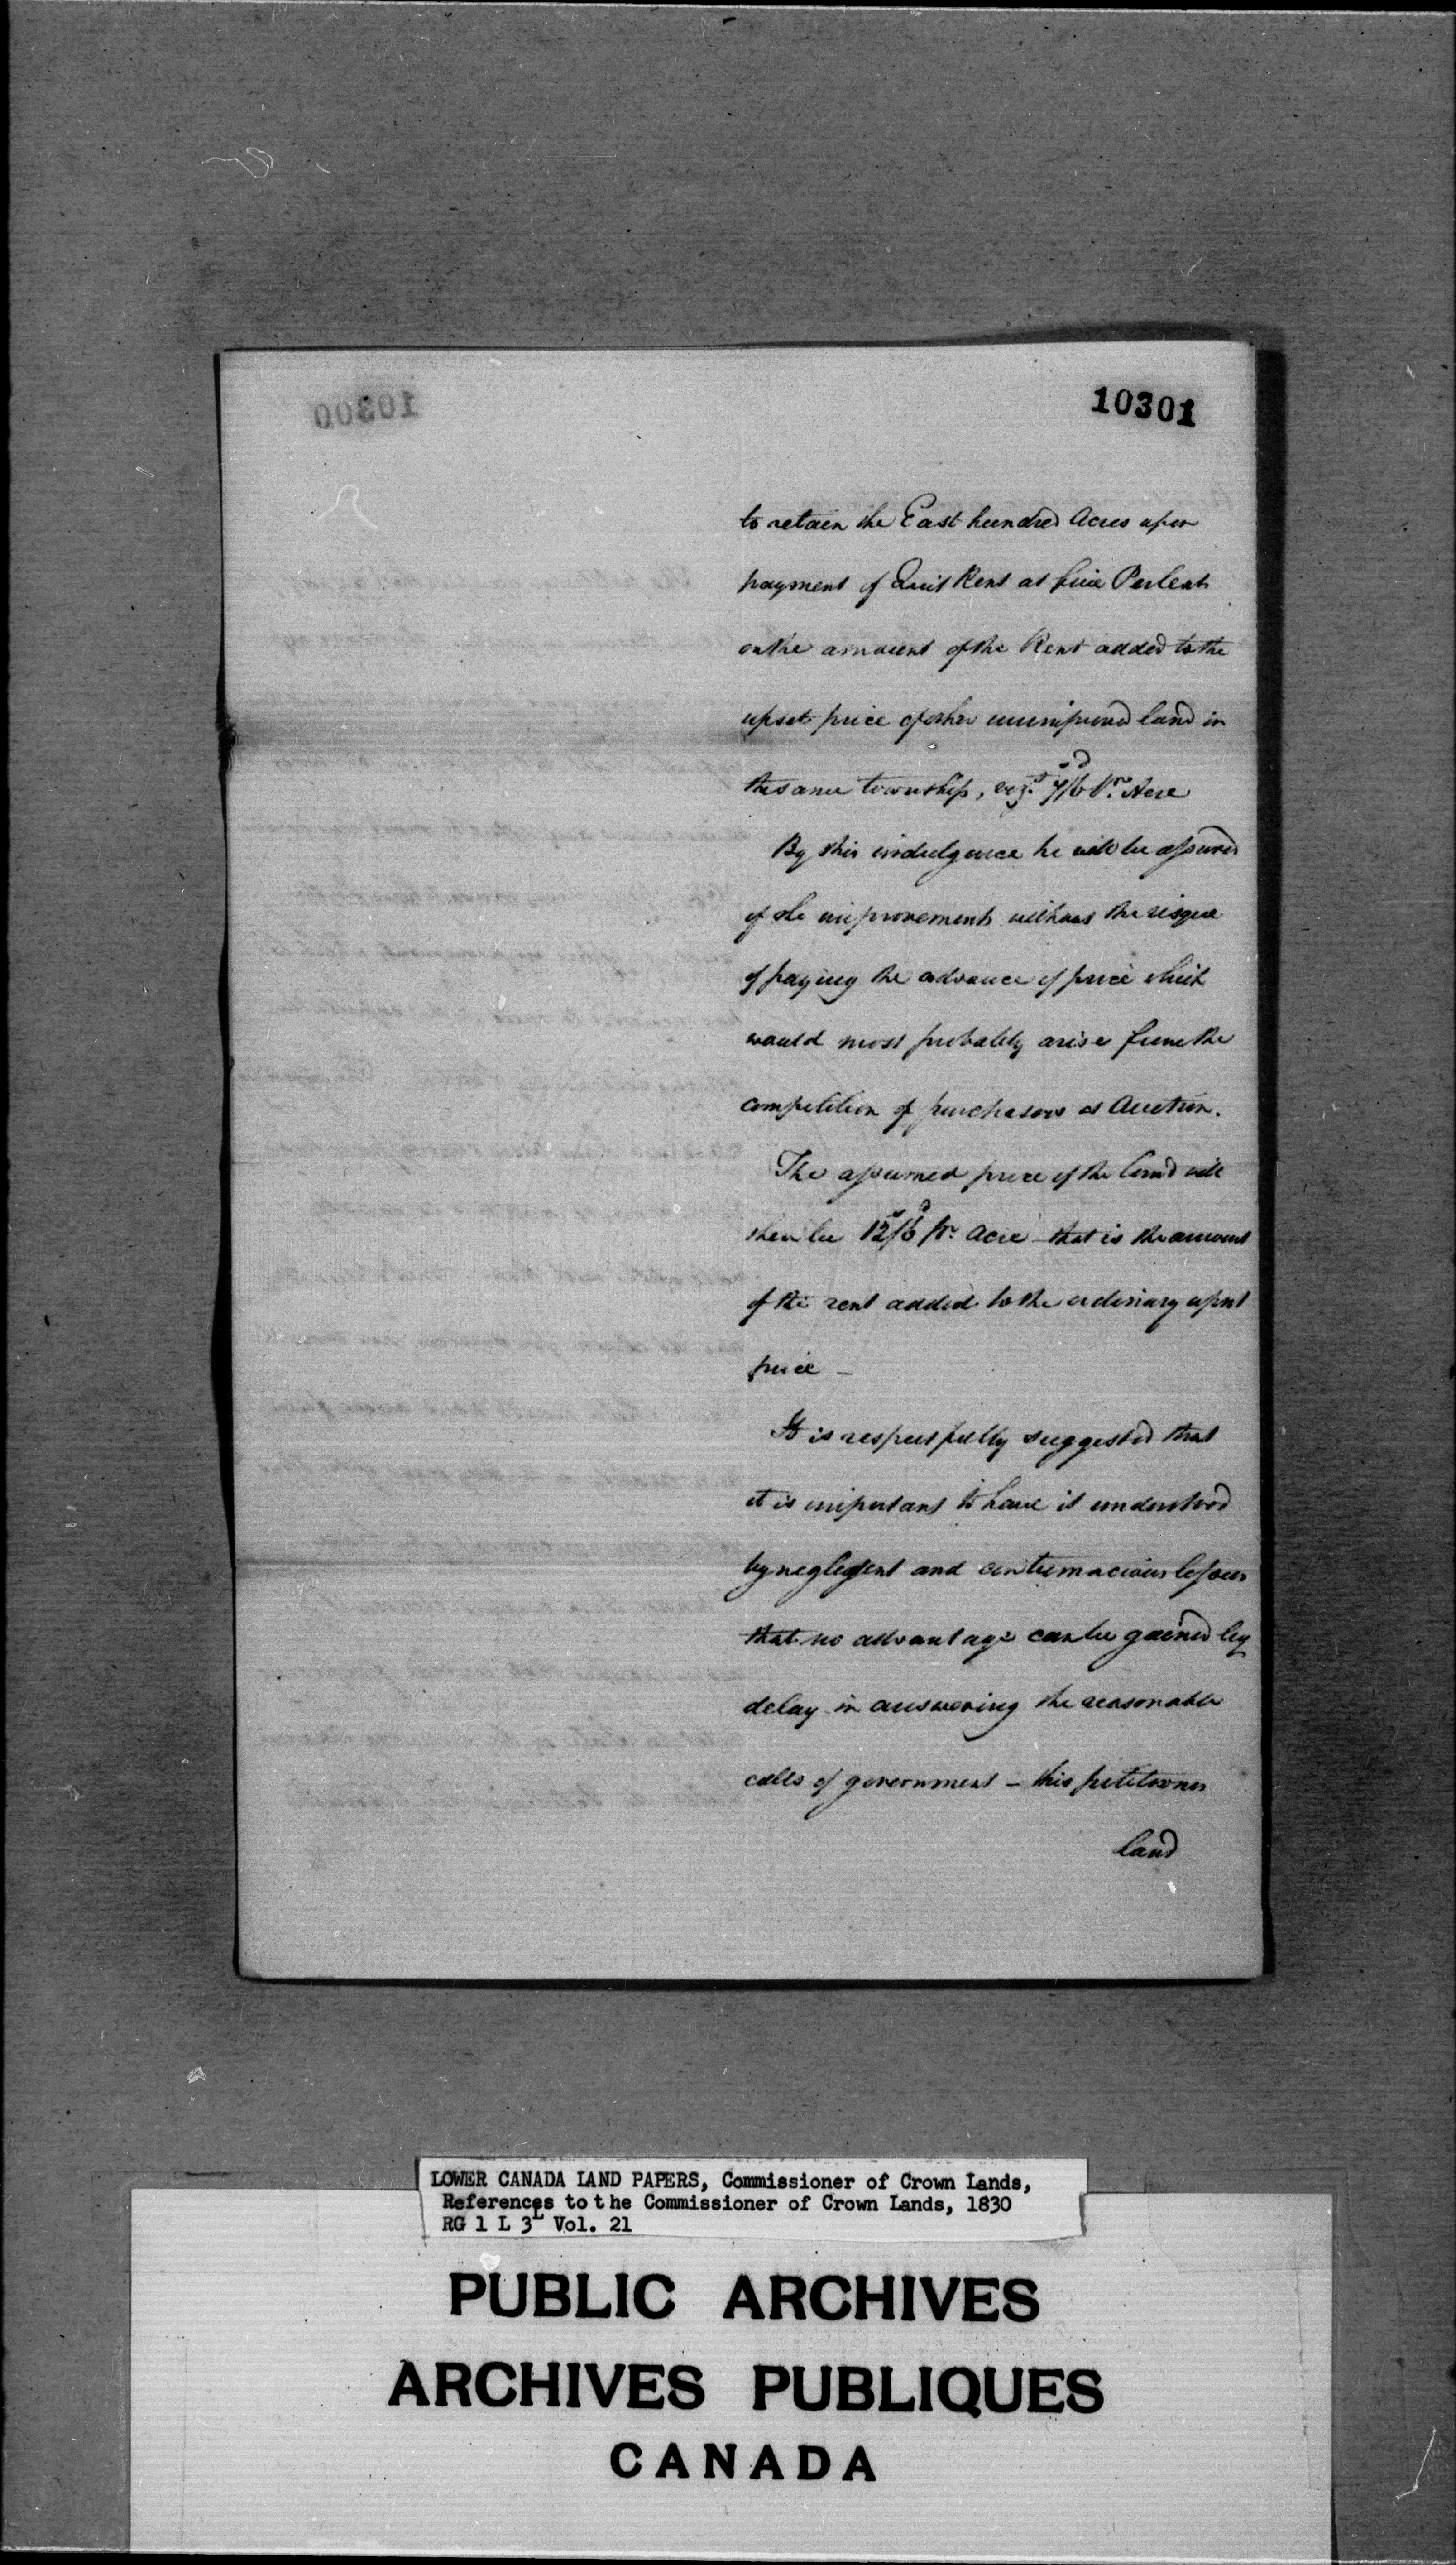 10300
10301
to retain the East hundred Acres upon
payment of Quit Rent at five PerCent
on the amount of the Rent added to the
upset price of other unimproved land in
the same township, vizt. 7/6 Pr. Acre
By this indulgence he will be assured
of the improvements without the risque
of paying the advance of price which
would most probably arise from the
competition of purchasers at Auction.
The assumed price of the land will
then be 12s/6d Pr. Acre that is the amount
of the rent added to the ordinary upset
price –
It is respectfully suggested that
it is important to have it understood
by neglegent and contumacious lessees
that no advantage can be gained by
delay in answering the reasonable
calls of government – this petitioner
land
LOWER CANADA LAND PAPERS, Commissioner of Crown Lands,
References to the Commissioner of Crown Lands, 1830
RG 1 L 3L Vol. 21
PUBLIC ARCHIVES
ARCHIVES PUBLIQUES
CANADA